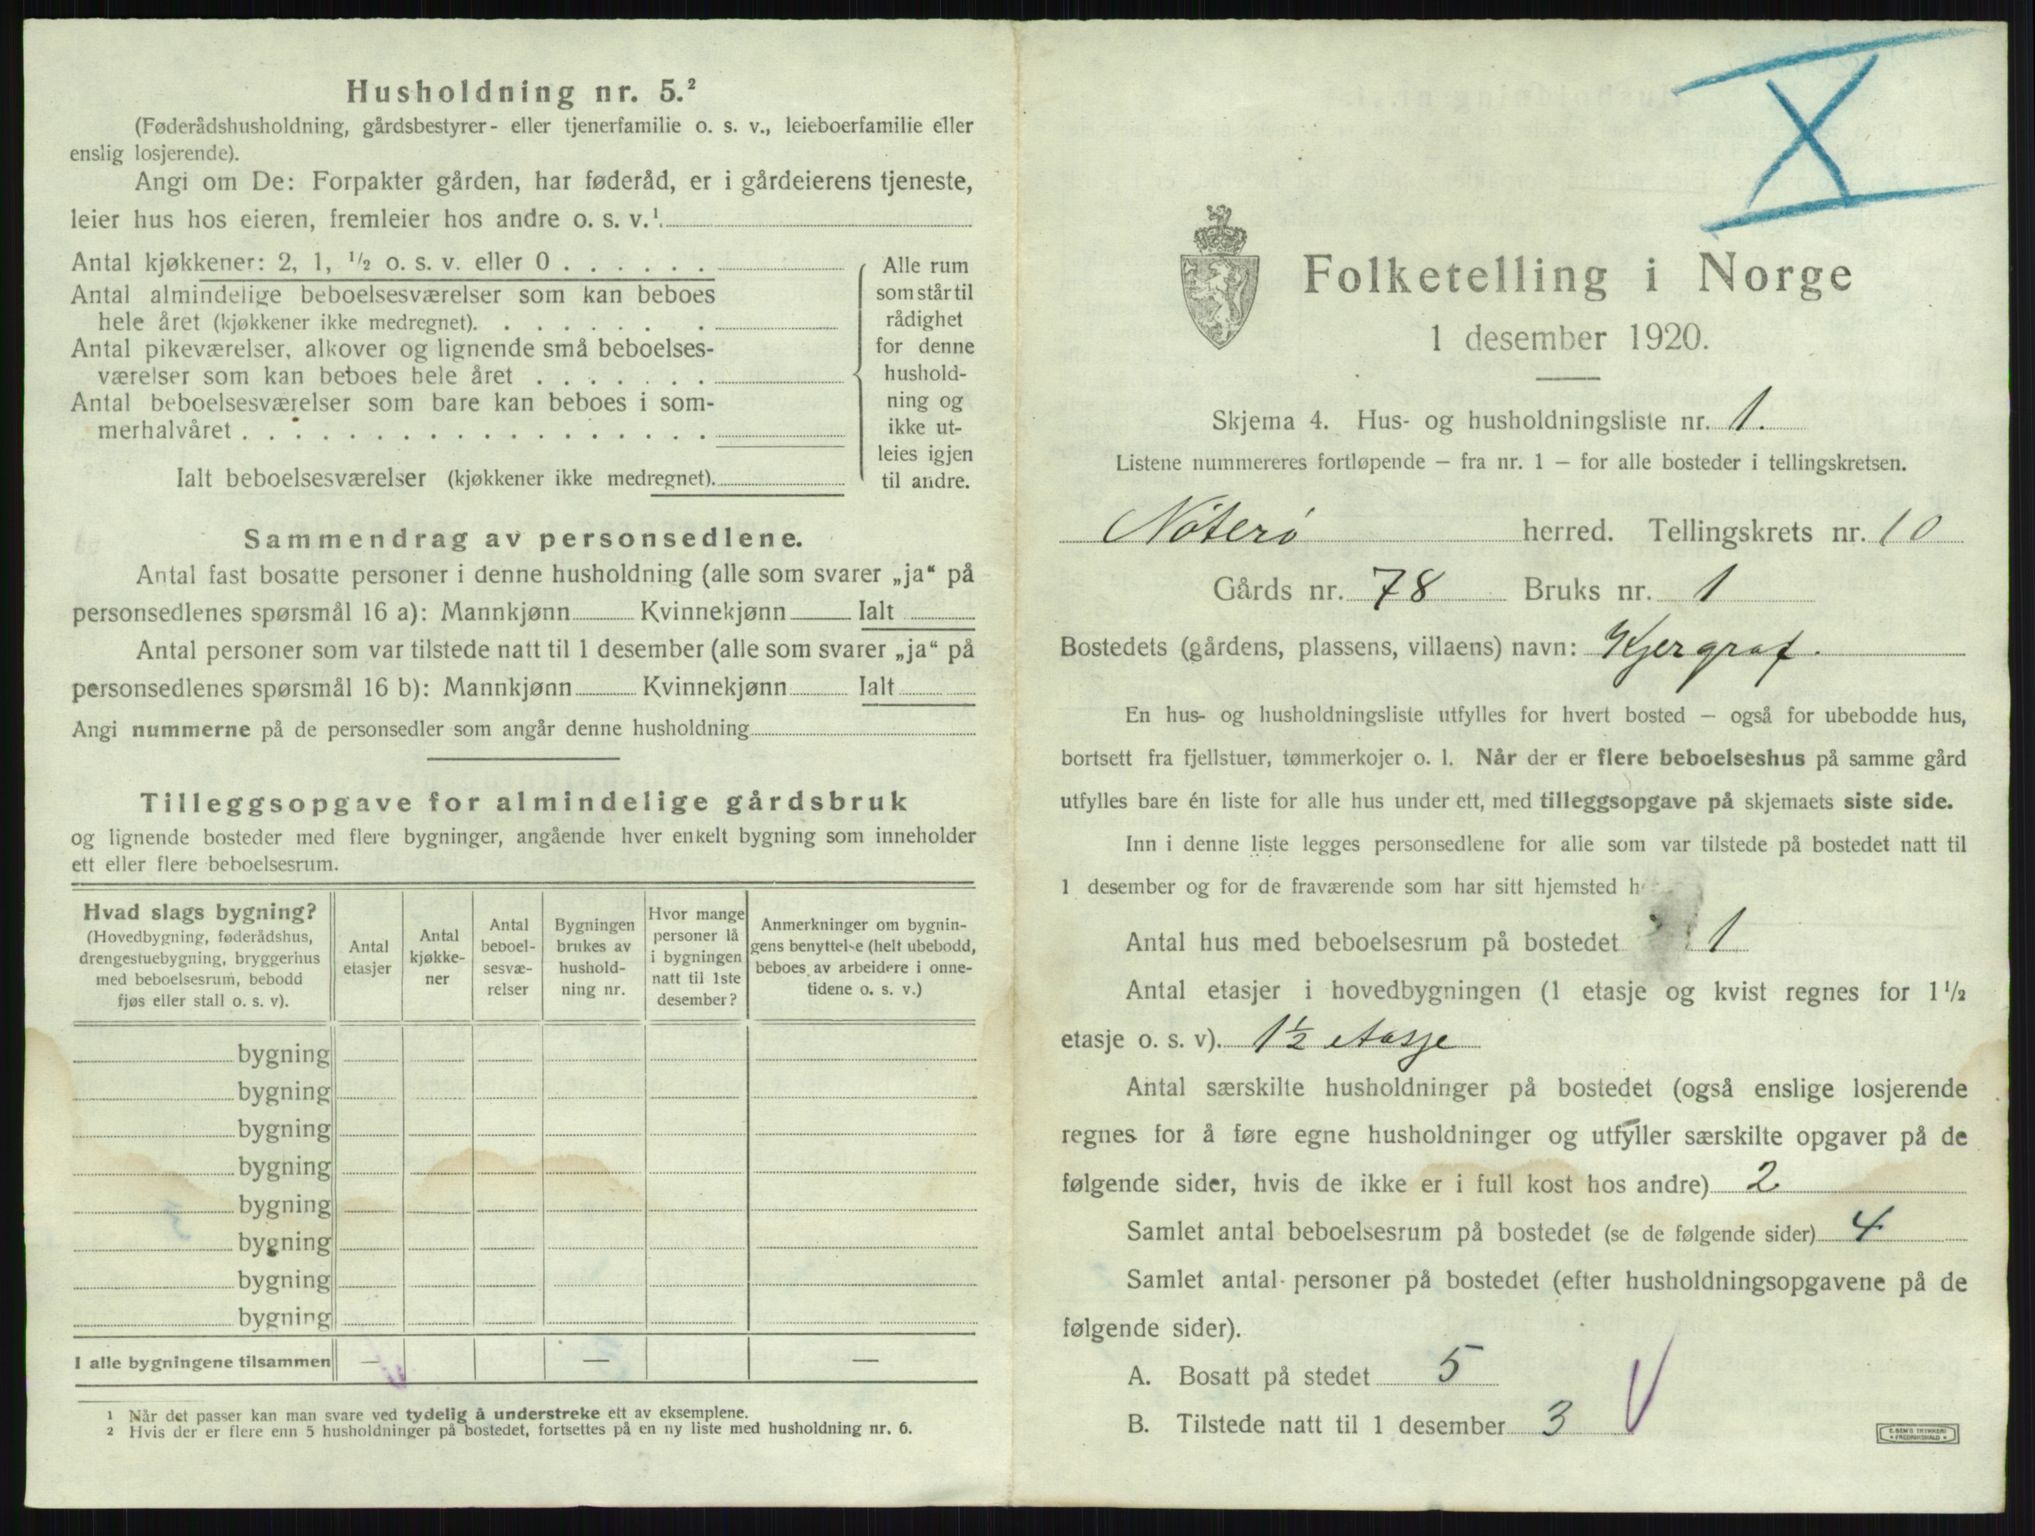 Husholdning nr. 5.²
(Føderådshusholdning, gårdsbestyrer- eller tjenerfamilie o. s. v., leieboerfamilie eller
enslig losjerende).
Angi om De: Forpakter gården, har føderåd, er i gårdeierens tjeneste,
leier hus hos eieren, fremleier hos andre o. s. v.¹
Antal kjøkkener: 2, 1, ½ o. s. v. eller 0 . . . . . .
Antal almindelige beboelsesværelser som kan beboes
hele året (kjøkkener ikke medregnet). . . . . . . .
Antal pikeværelser, alkover og lignende små beboelses-
værelser som kan beboes hele året . . . . . . .
Antal beboelsesværelser som bare kan beboes i som-
merhalvåret . . . . . . . . . . . . . . . . . .
Ialt beboelsesværelser (kjøkkener ikke medregnet).
Alle rum
som står til
rådighet
for denne
hushold-
ning og
ikke ut-
leies igjen
til andre.
Sammendrag av personsedlene.
Antal fast bosatte personer i denne husholdning (alle som svarer „ja“ på
personsedlenes spørsmål 16 a): Mannkjønn Kvinnekjønn Ialt
Antal personer som var tilstede natt til 1 desember (alle som svarer „ja“ på
personsedlenes spørsmål 16 b): Mannkjønn Kvinnekjønn Ialt
Angi nummerne på de personsedler som angår denne husholdning
Tilleggsopgave for almindelige gårdsbruk
og lignende bosteder med flere bygninger, angående hver enkelt bygning som inneholder
ett eller flere beboelsesrum.
Hvad slags bygning?
(Hovedbygning, føderådshus,
drengestuebygning, bryggerhus
med beboelsesrum, bebodd
fjøs eller stall o. s. v).
Antal
etasjer
Antal
kjøkke-
ner
Antal
beboel-
sesvæ-
relser
Bygningen
brukes av
hushold-
ning nr.
Hvor mange
personer lå
i bygningen
natt til 1ste
desember?
Anmerkninger om bygnin-
gens benyttelse (helt ubebodd,
beboes av arbeidere i onne-
tidene o. s. v.)
bygning
bygning
bygning
bygning
bygning
bygning
bygning
bygning
I alle bygningene tilsammen — — —
¹ Når det passer kan man svare ved tydelig å understreke ett av eksemplene.
² Hvis der er flere enn 5 husholdninger på bostedet, fortsettes på en ny liste med husholdning nr. 6.
X
Folketelling i Norge
1 desember 1920.
Skjema 4. Hus- og husholdningsliste nr. 1.
Listene nummereres fortløpende — fra nr. 1 — for alle bosteder i tellingskretsen.
Nøterø herred. Tellingskrets nr. 10
Gårds nr. 78 Bruks nr. 1
Bostedets (gårdens, plassens, villaens) navn: Kjergraf.
En hus- og husholdningsliste utfylles for hvert bosted — også for ubebodde hus,
bortsett fra fjellstuer, tømmerkojer o. l. Når der er flere beboelseshus på samme gård
utfylles bare én liste for alle hus under ett, med tilleggsopgave på skjemaets siste side.
Inn i denne liste legges personsedlene for alle som var tilstede på bostedet natt til
1 desember og for de fraværende som har sitt hjemsted
Antal hus med beboelsesrum på bostedet 1
Antal etasjer i hovedbygningen (1 etasje og kvist regnes for 1½
etasje o. s. v). 1½ etasje
Antal særskilte husholdninger på bostedet (også enslige losjerende
regnes for å føre egne husholdninger og utfyller særskilte opgaver på de
følgende sider, hvis de ikke er i full kost hos andre) 2
Samlet antal beboelsesrum på bostedet (se de følgende sider) 4
Samlet antal personer på bostedet (efter husholdningsopgavene på de
følgende sider).
A. Bosatt på stedet 5
B. Tilstede natt til 1 desember 3